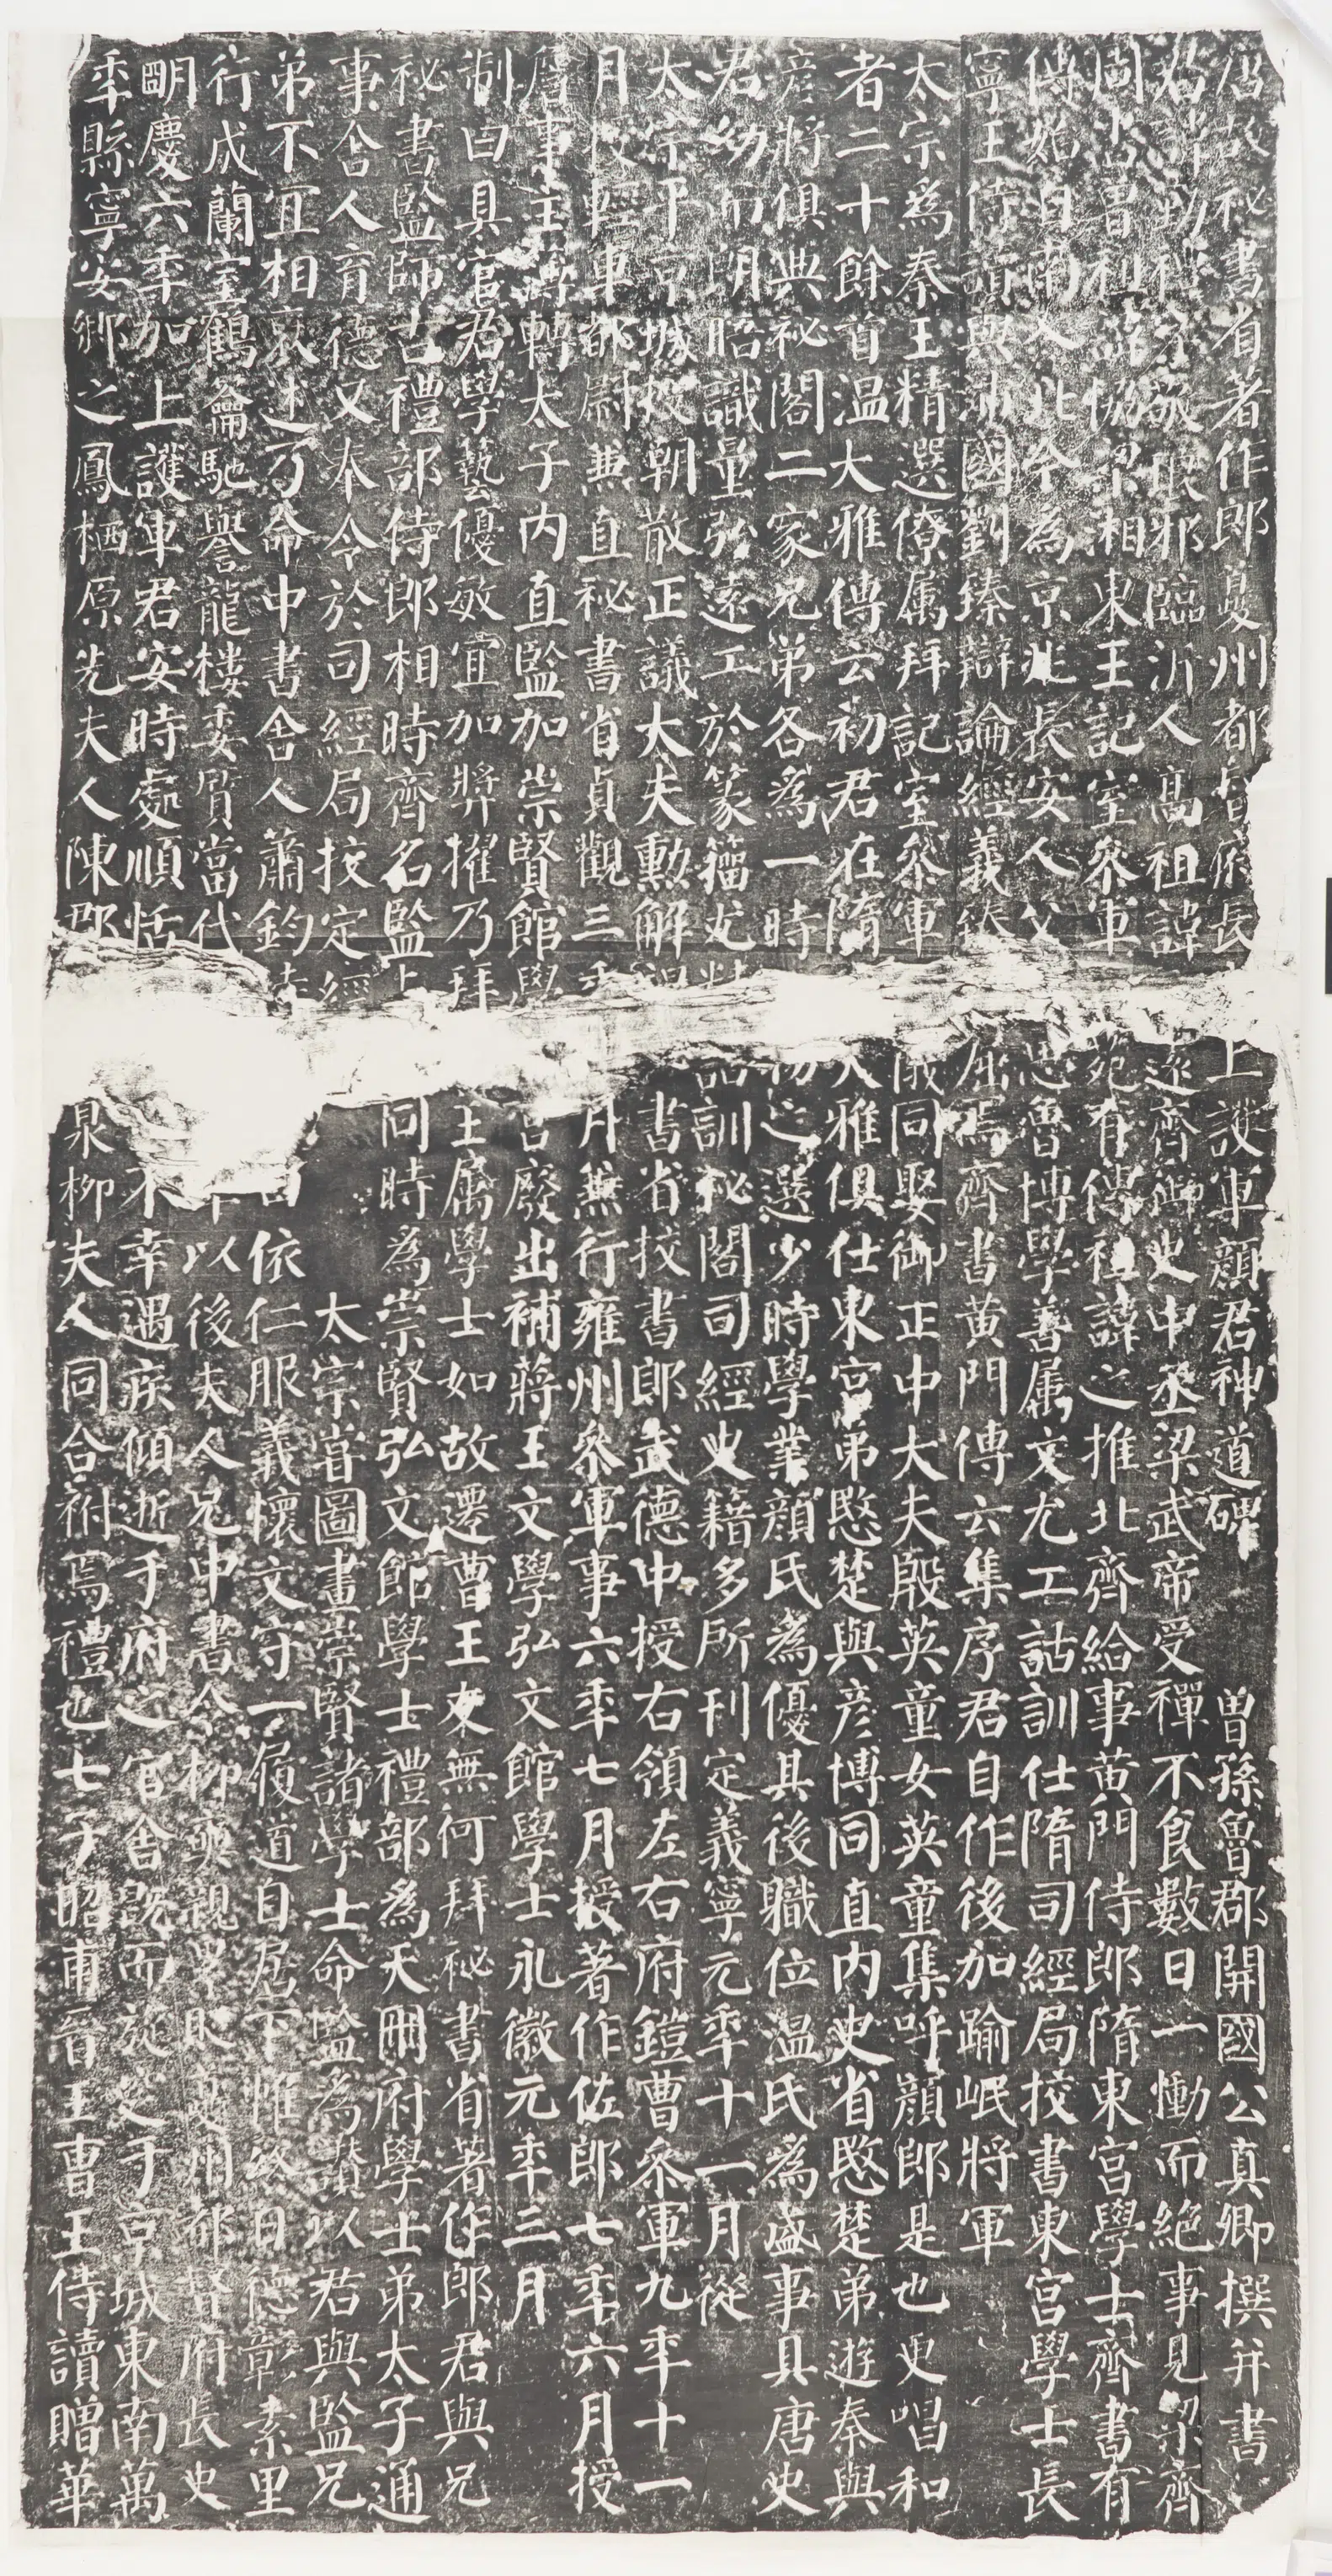 唐故秘書省著作郎夔州都督府長上護軍顏君神道碑　曾孫魯郡開國公真卿撰并書
君諱勤禮字敬琅邪臨沂人高祖諱遠齊御史中丞梁武帝受禪不食數日一慟而絕事見梁齊
周書曾祖諱協梁湘東王記室參軍苑有傳祖諱之推北齊給事黃門侍郎隋東宮學士齊書有
傳始自南入北今為京兆長安人父思魯博學善屬文尤工詁訓仕隋司經局校書東宮學士長
寧王侍讀與沛國劉臻辯論經義臻屈焉齊書黃門傳云集序君自作後加踰岷將軍
太宗為秦王精選僚屬拜記室參軍儀同娶御正中大夫殷英童女英童集呼顏郎是也更唱和
者二十餘首溫大雅傳云初君在隋大雅俱仕東宮弟愍楚與彥博同直內史省愍楚弟遊秦與
彥將俱典祕閣二家兄弟各為一時物之選少時學業顏氏為優其後職位溫氏為盛事具唐史
君幼而朗晤識量弘遠工於篆籀尤精詁訓祕閣司經史籍多所刊定義寧元年十一月從
太宗平京城授朝散正議大夫勳解褐書省校書郎武德中授右領左右府鎧曹參軍九年十一
月授輕車都尉兼直祕書省貞觀三年月兼行雍州參軍事六年七月授著作佐郎七年六月授
詹事主簿轉太子內直監加崇賢館學宮廢出補蔣王文學弘文館學士永徽元年三月
制曰具官君學藝優敏宜加獎擢乃拜王屬學士如故遷曹王友無何拜祕書省著作郎君與兄
祕書監師古禮部侍郎相時齊名監與同時為崇賢弘文館學士禮部為天冊府學士弟太子通
事舍人育德又奉令於司經局校定經　太宗嘗圖畫崇賢諸學士命監為讚以君與監兄
弟不宜相褒述乃命中書舍人蕭鈞特曰依仁服義懷文守一履道自居下帷終日德彰素里
行成蘭室鶴籥馳譽龍樓委質當代年以後夫人兄中書令柳奭親累貶夔州都督府長史
明慶六年加上護軍君安時處順恬不幸遇疾傾逝于府之官舍既而旋窆于京城東南萬
年縣寧安鄉之鳳栖原先夫人陳郡泉柳夫人同合祔焉禮也七子昭甫晉王曹王侍讀贈華